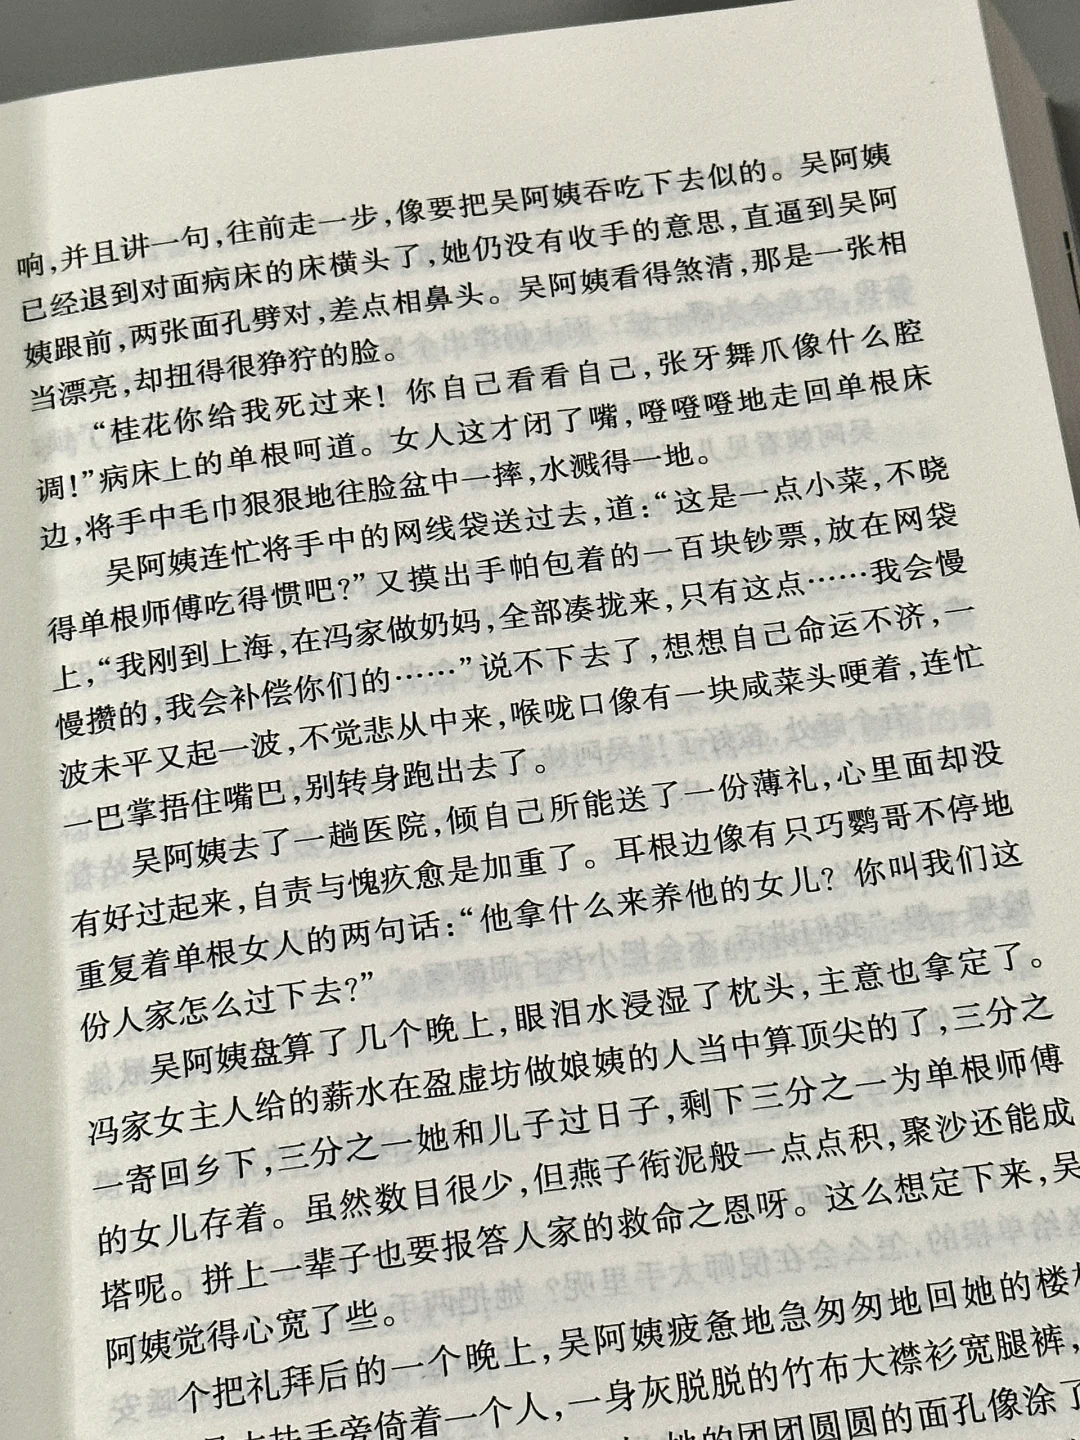 响，并且讲一句，往前走一步，像要把吴阿姨吞吃下去似的。吴阿姨
已经退到对面病床的床横头了，她仍没有收手的意思，直逼到吴阿
姨跟前，两张面孔劈对，差点相鼻头。吴阿姨看得煞清，那是一张相
当漂亮，却扭得很狰狞的脸。
“桂花你给我死过来！你自己看看自己，张牙舞爪像什么腔
调！”病床上的单根呵道。女人这才闭了嘴，噔噔噔地走回单根床
边，将手中毛巾狠狠地往脸盆中一摔，水溅得一地。
吴阿姨连忙将手中的网线袋送过去，道：“这是一点小菜，不晓
得单根师傅吃得惯吧？”又摸出手帕包着的一百块钞票，放在网袋
上，“我刚到上海，在冯家做奶妈，全部凑拢来，只有这点……我会慢
慢攒的，我会补偿你们的……”说不下去了，想想自己命运不济，一
波未平又起一波，不觉悲从中来，喉咙口像有一块咸菜头哽着，连忙
一巴掌捂住嘴巴，别转身跑出去了。
吴阿姨去了一趟医院，倾自己所能送了一份薄礼，心里面却没
有好过起来，自责与愧疚愈是加重了。耳根边像有只巧鹦哥不停地
重复着单根女人的两句话：“他拿什么来养他的女儿？你叫我们这
份人家怎么过下去？”
吴阿姨盘算了几个晚上，眼泪水浸湿了枕头，主意也拿定了。
冯家女主人给的薪水在盈虚坊做娘姨的人当中算顶尖的了，三分之
一寄回乡下，三分之一她和儿子过日子，剩下三分之一为单根师傅
的女儿存着。虽然数目很少，但燕子衔泥般一点点积，聚沙还能成
塔呢。拼上一辈子也要报答人家的救命之恩呀。这么想定下来，吴
阿姨觉得心宽了些。
个把礼拜后的一个晚上，吴阿姨疲惫地急匆匆地回她的楼梯
扶手旁倚着一个人，一身灰脱脱的竹布大襟衫宽腿裤，
她的团团圆圆的面孔像涂了